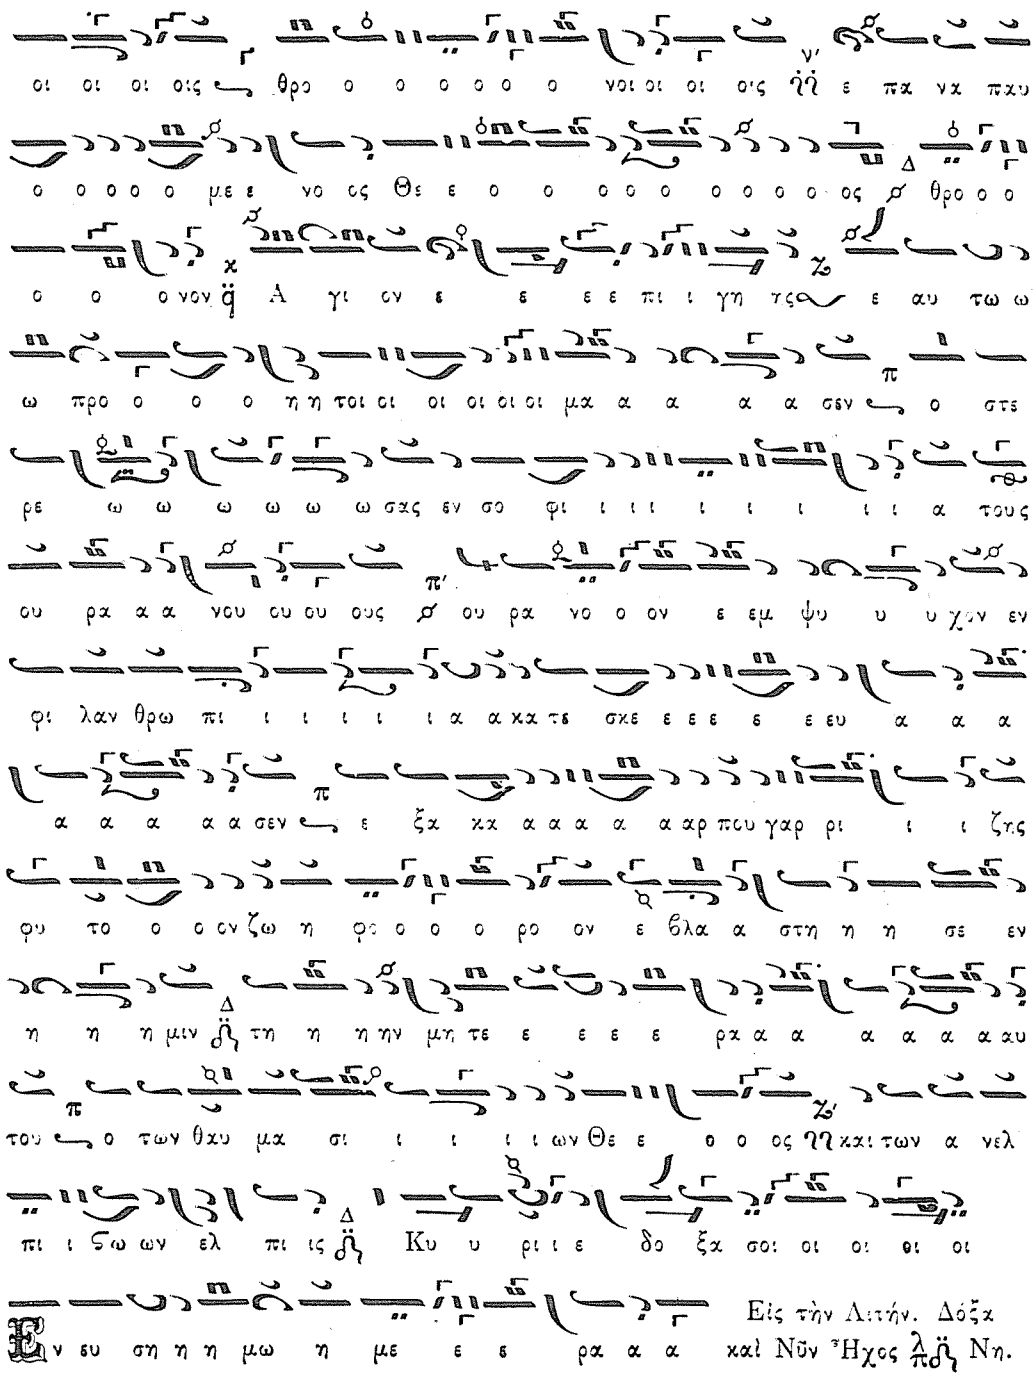 οι οι οι οις θρο ο ο ο ο ο ο νοι οι οι οις ε πα να παυ
ο ο ο ο ο με ε νο ος Θε ε ο ο ο ο ο ο ο ο ο ο ος θρο ο ο
ο ο ο νον Α γι ον ε ε ε ε πι ι γη ης ε αυ τω ω
ω προ ο ο ο η η τοι οι οι οι οι οι μα α α α α σεν ο στε
ρε ω ω ω ω ω ω σας εν σο φι ι ι ι ι ι ι ι ι ι α τους
ου ρα α α νου ου ου ους ου ρα νο ο ον ε εμ ψυ υ υ χον εν
φι λαν θρω πι ι ι ι ι ι α α κα τε σκε ε ε ε ε ε ευ α α α
α α α α α σεν ε ξα κα α α α α α αρ που γαρ ρι ι ι ζης
φυ το ο ο ον ζω η φο ο ο ο ρο ον ε βλα α στη η η σε εν
η η η μιν τη η η ην μη τε ε ε ε ε ρα α α α α α α αυ
του ο των θαυ μα σι ι ι ι ι ων Θε ε ο ο ος και των α νελ
πι ι ϛω ων ελ πι ις Κυ υ ρι ι ε δο ξα σοι οι οι οι οι
Εἰς τὴν Λιτήν. Δόξα
Εν ευ ση η η μω η με ε ε ε ρα α α καὶ Νῦν Ἦχος Νη.